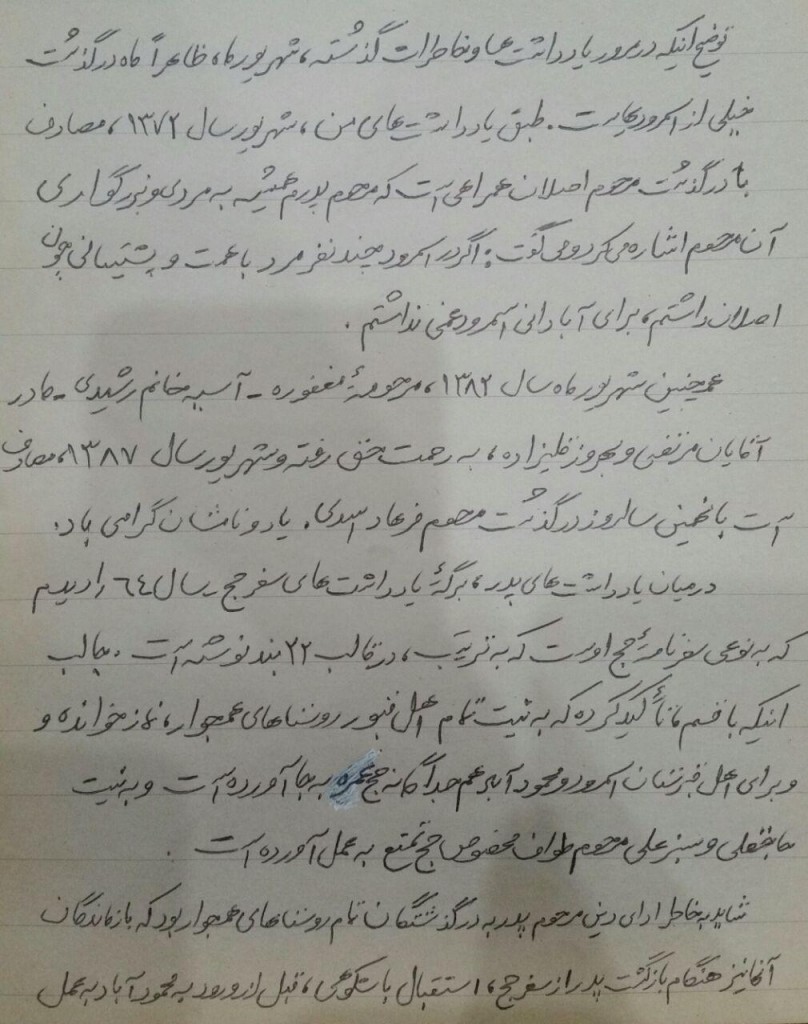 توضیح اینکه در مرور یادداشت‌ها و خاطرات گذشته، شهریورماه، ظاهراً ماه درگذشت
خیلی از اسمرودیهاست. طبق یادداشت‌های من، شهریور سال ۱۳۷۲، مصادف
با درگذشت مرحوم اصلان همراهی است که مرحوم پدرم همیشه به مردی و بزرگواری
آن مرحوم اشاره می‌کرد و می‌گفت: اگر در اسمرود چند نفر مرد با همت و پشتیبانی چون
اصلان داشتم، برای آبادانی اسمرود غمی نداشتم.
همچنین شهریورماه سال ۱۳۸۲، مرحومهٔ مغفوره - آسیه خانم رشیدی - مادر
آقایان مرتضی و بهروز خلیلزاده، به رحمت حق رفته و شهریور سال ۱۳۸۷، مصادف
است با سالروز درگذشت مرحوم فرهاد اسدی. یاد و نامشان گرامی باد.
در میان یادداشت‌های پدر، برگهٔ یادداشت‌های سفر حج سال ٦٤ را دیدم
که به نوعی سفرنامهٔ حج اوست که به ترتیب، در قالب ۲۲ بند نوشته است. جالب
اینکه با قسم تأکید کرده که به نیت تمام اهل قبور روستاهای همجوار، نماز خوانده و
و برای اهل قبرستان اسمرود و محمودآباد هم جداگانه حج عمره به جا آورده است و به نیت
و سبزعلی مرحوم طواف مخصوص حج تمتع به عمل آورده است.
شاید به خاطر ادای دین مرحوم پدر به درگذشتگان تمام روستاهای همجوار بود که بازماندگان
آنها نیز هنگام بازگشت پدر از سفر حج، استقبال باشکوهی، قبل از ورود به محمودآباد به عمل